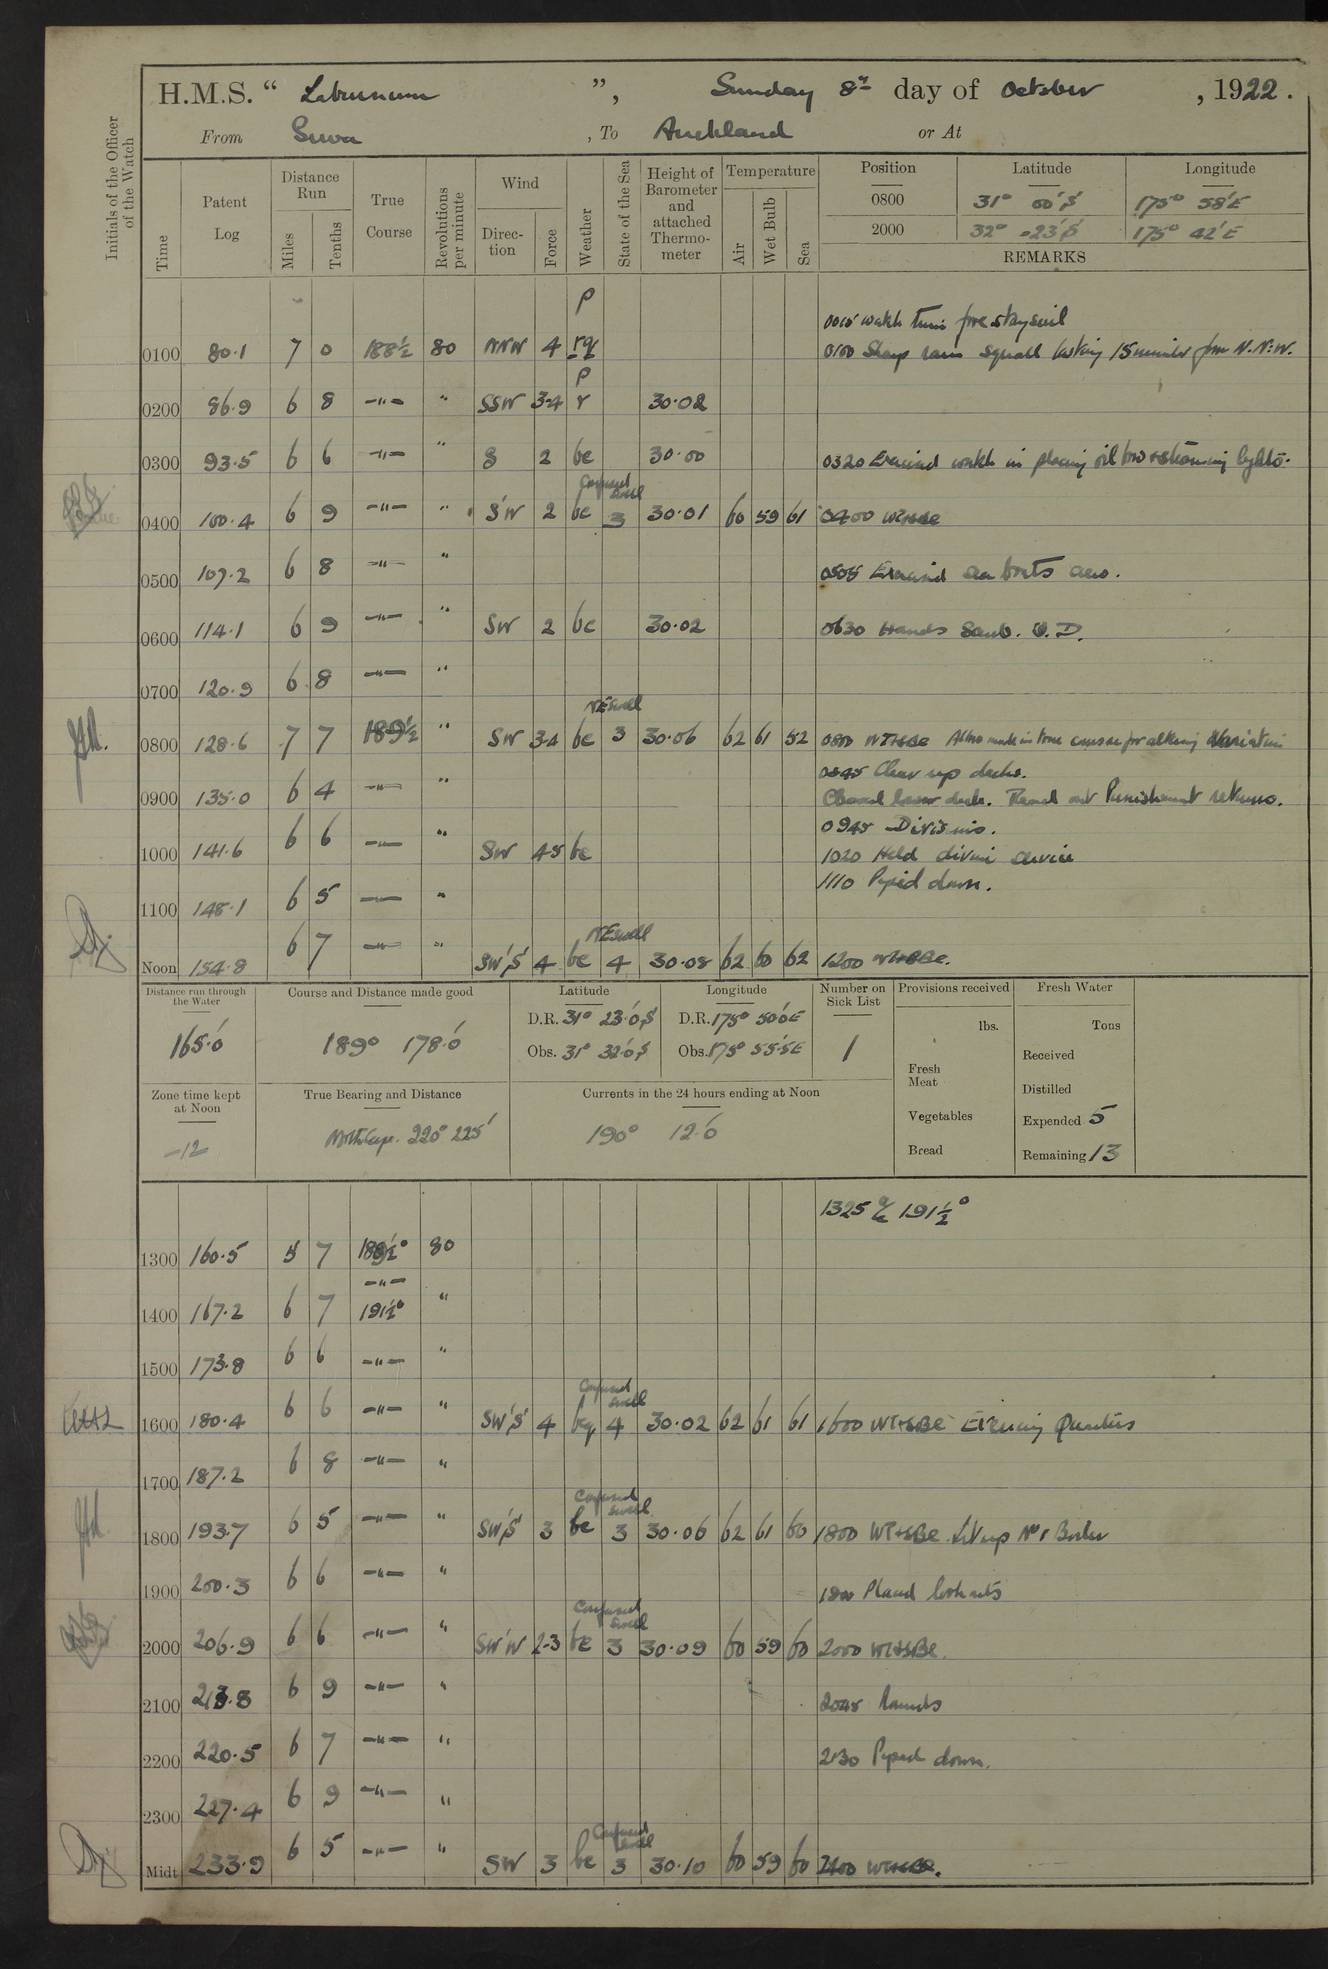 H.M.S. “ Laburnum ”, Sunday 8th day of October , 1922.
From Suva , To Auckland or At
Initials of the Officer of the Watch
Time
Patent Log
Distance Run
Miles
Tenths
True Course
Revolutions per minute
Wind
Direc-tion
Force
Weather
State of the Sea
Height of Barometer and attached Thermo-meter
Temperature
Air
Wet Bulb
Sea
Position Latitude Longitude
0800 31° 00'S 175° 58'E
2000 32° 23'S 175° 42'E
REMARKS
p
0010 watch fore staysail
0100 80.1 7 0 188½ 80 NNW 4 rq 0100 Sharp rain squall lasting 15 minutes from N.N.W.
p
0200 86.9 6 8 —"— " SSW 3-4 r 30.02
0300 93.5 6 6 —"— " S 2 bc 30.00 0320 Exercised watch in placing oil &
Confused swell
0400 100.4 6 9 —"— " S'W 2 bc 3 30.01 60 59 61 0400 WT+SBE
0500 107.2 6 8 —"— " 0505 Exercised sea boats crew.
0600 114.1 6 9 —"— " SW 2 bc 30.02 0630 Hands U.D.
0700 120.9 6 8 —"— "
NE swell
0800 128.6 7 7 189½ " SW 3-4 bc 3 30.06 62 61 52 0800 WT+SBE made in true course for altering Variation
0845 Clear up decks.
0900 135.0 6 4 —"— " Cleared lower deck. Read out Punishment returns.
0945 Divisions.
1000 141.6 6 6 —"— " SW 4-5 bc 1020 Held divine service
1110 Piped down.
1100 148.1 6 5 —"— "
NE swell
Noon 154.8 6 7 —"— " SW'S' 4 bc 4 30.08 62 60 62 1200 WT+SBE.
Distance run through the Water
165.'0
Course and Distance made good
189° 178.'0
Latitude
D.R. 31° 23.'0 S
Obs. 31° 32.'0 S
Longitude
D.R. 175° 50.'0 E
Obs. 175° 55.'5 E
Number on Sick List
1
Provisions received
lbs.
Fresh Meat
Vegetables
Bread
Fresh Water
Tons
Received
Distilled
Expended 5
Remaining 13
Zone time kept at Noon
-12
True Bearing and Distance
North Cape. 220° 225'
Currents in the 24 hours ending at Noon
190° 12.'0
1325 a/c 191½°
1300 160.5 5 7 189½° 80
—"—
1400 167.2 6 7 191½° "
1500 173.8 6 6 —"— "
Confused swell
1600 180.4 6 6 —"— " SW'S' 4 bcq 4 30.02 62 61 61 1600 WT+SBE Evening Quarters
1700 187.2 6 8 —"— "
Confused swell
1800 193.7 6 5 —"— " SW'S' 3 bc 3 30.06 62 61 60 1800 WT+SBE. Lit up No 1 Boiler
1900 200.3 6 6 —"— " 1800 Placed lookouts
Confused swell
2000 206.9 6 6 —"— " SW'W 2-3 bc 3 30.09 60 59 60 2000 WT+SBE.
2100 213.8 6 9 —"— " 2045 Rounds
2200 220.5 6 7 —"— " 2130 Piped down.
2300 227.4 6 9 —"— "
Confused swell
Midt 233.9 6 5 —"— " SW 3 bc 3 30.10 60 59 60 2400 WT+SBE.